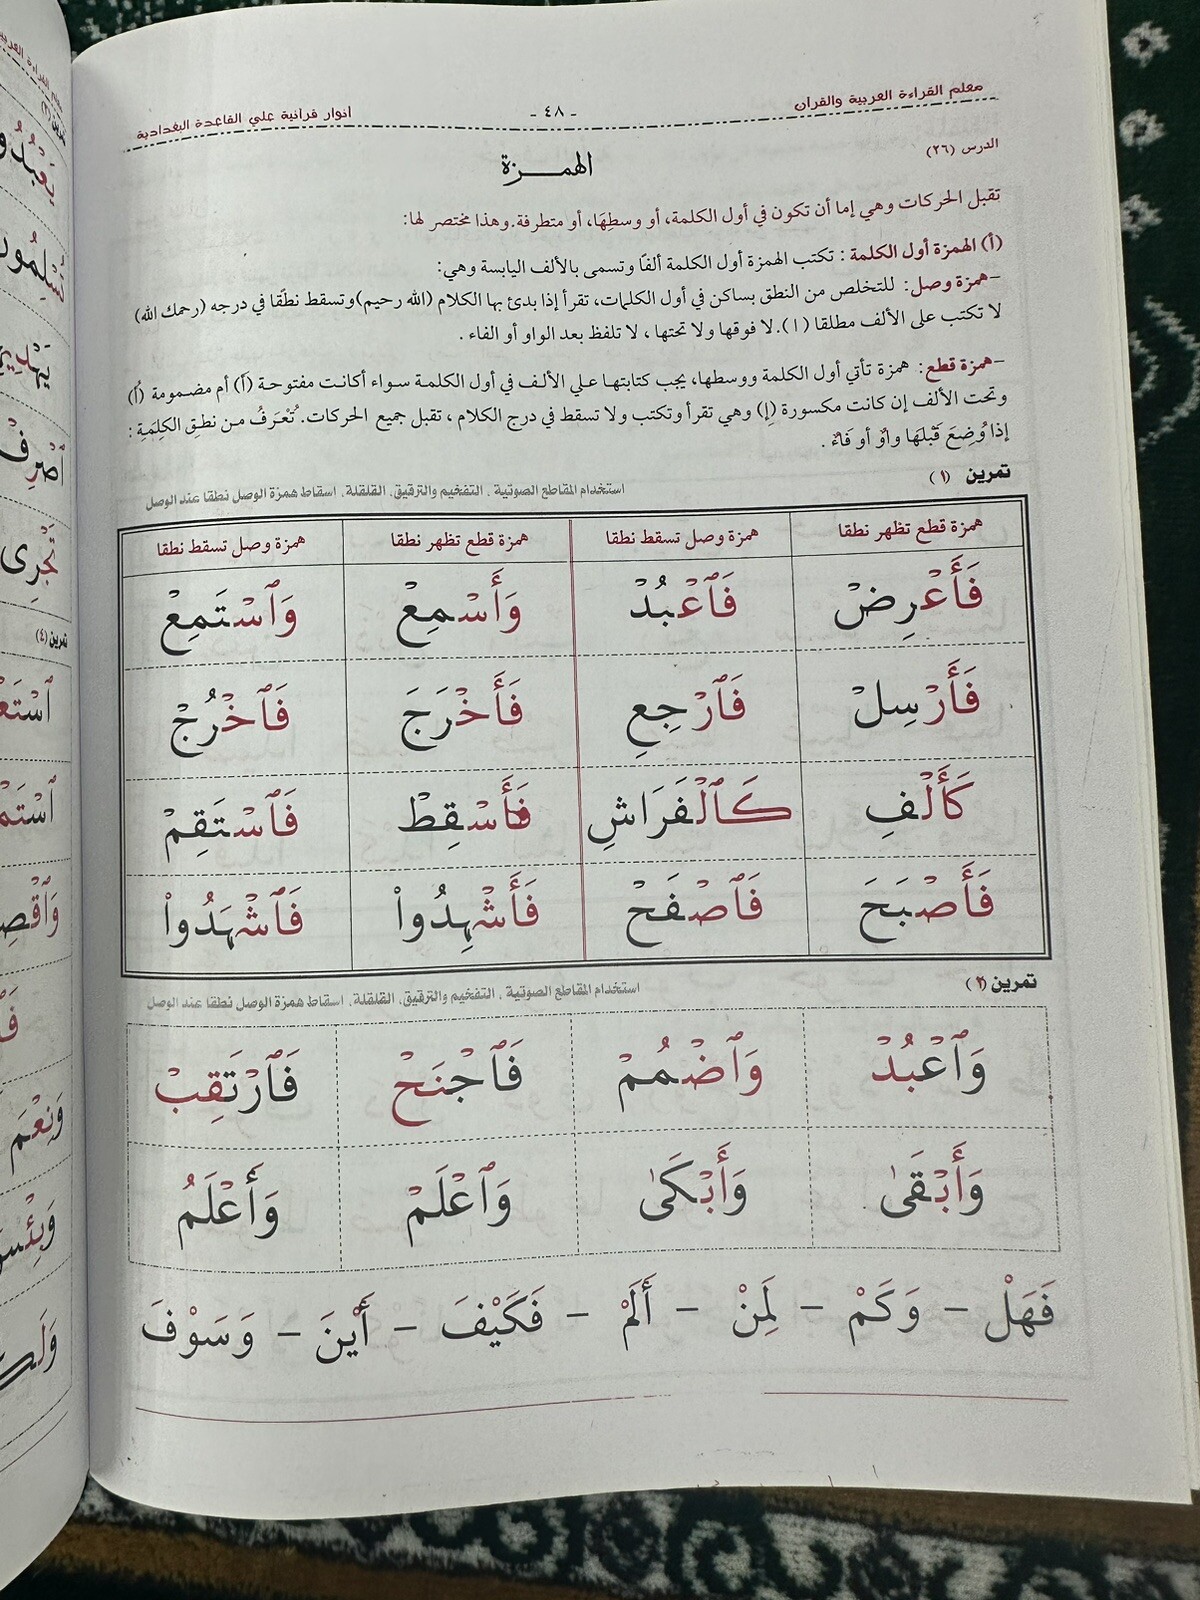 معلم القراءة العربية والقرآن - ٤٨ - انوار قرآنية علي القاعدة البغدادية
الدرس (٢٦)
الهمـــزة
تقبل الحركات وهي إما أن تكون في أول الكلمة، أو وسطِهَا، أو متطرفة. وهذا مختصر لها:
(أ) الهمزة أول الكلمة : تكتب الهمزة أول الكلمة ألفًا وتسمى بالألف اليابسة وهي:
-همزة وصل: للتخلص من النطق بساكن في أول الكلمات، تقرأ إذا بدئ بها الكلام (الله رحيم) وتسقط نطقًا في درجه (رحمك الله)
لا تكتب على الألف مطلقا (ا). لا فوقها ولا تحتها، لا تلفظ بعد الواو أو الفاء .
-همزة قطع: همزة تأتي أول الكلمة ووسطها، يجب كتابتها علي الألف في أول الكلمة سواء أكانت مفتوحة (أَ) أم مضمومة (أُ)
وتحت الألف إن كانت مكسورة (إِ) وهي تقرأ وتكتب ولا تسقط في درج الكلام ، تقبل جميع الحركات. تُعْرَفُ من نطقِ الكلِمَةِ :
إذا وُضِعَ قَبْلَهَا واوٌ أو فَاءٌ .
تمرين (١) استخدام المقاطع الصوتية ، التفخيم والترقيق، القلقلة، اسقاط همزة الوصل نطقا عند الوصل
همزة قطع تظهر نطقا همزة وصل تسقط نطقا همزة قطع تظهر نطقا همزة وصل تسقط نطقا
فَأَعْرِضْ فَٱعْبُدْ وَأَسْمِعْ وَٱسْتَمِعْ
فَأَرْسِلْ فَٱرْجِعِ فَأَخْرَجَ فَٱخْرُجْ
كَأَلْفِ كَٱلْفَرَاشِ فَأَسْقِطْ فَٱسْتَقِمْ
فَأَصْبَحَ فَٱصْفَحْ فَأَشْهِدُوا۟ فَٱشْهَدُوا۟
تمرين (٢) استخدام المقاطع الصوتية ، التفخيم والترقيق، القلقلة، اسقاط همزة الوصل نطقا عند الوصل
وَٱعْبُدْ وَٱضْمُمْ فَٱجْنَحْ فَٱرْتَقِبْ
وَأَبْقَىٰ وَأَبْكَىٰ وَٱعْلَمْ وَأَعْلَمُ
فَهَلْ – وَكَمْ – لِمَنْ – أَلَمْ – فَكَيْفَ – أَيْنَ – وَسَوْفَ
تمرين (٤)